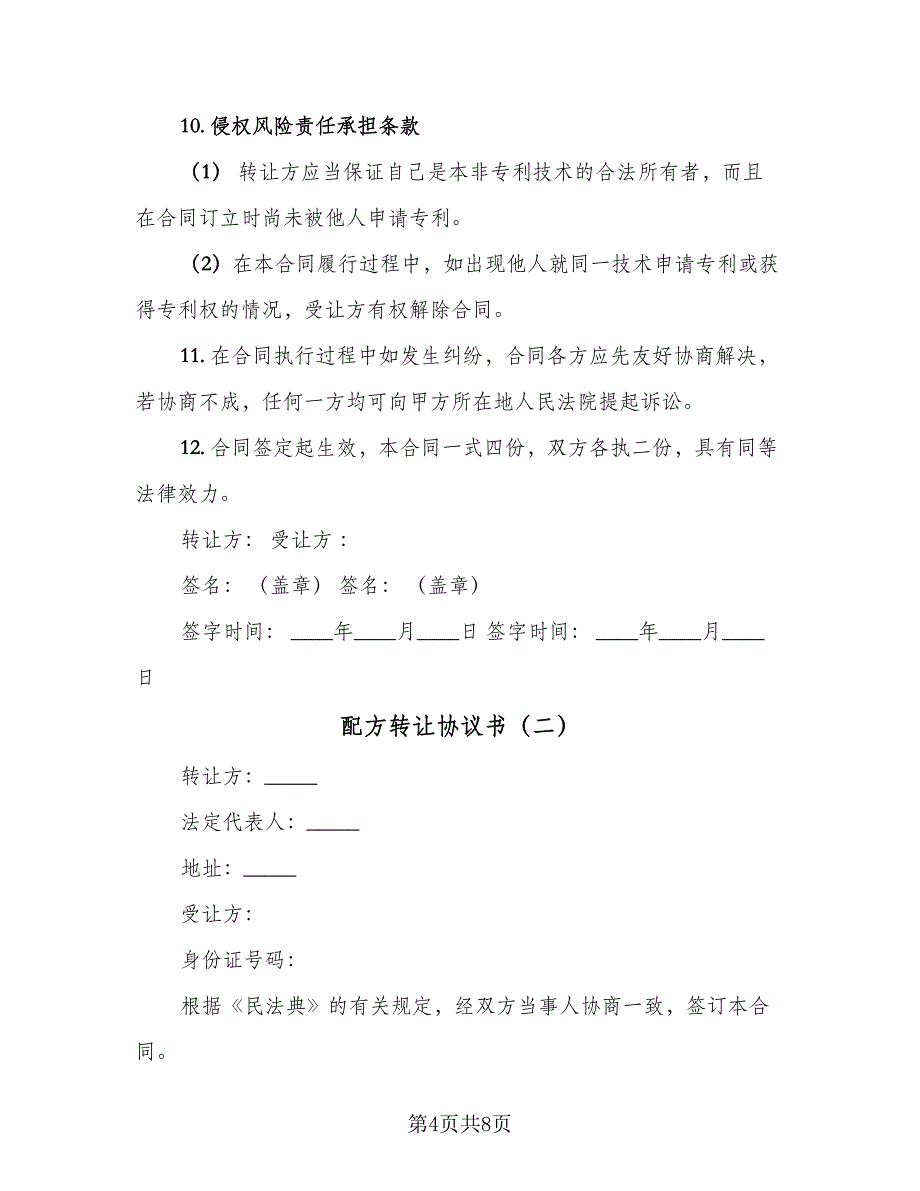 10. 侵权风险责任承担条款
（1） 转让方应当保证自己是本非专利技术的合法所有者，而且
在合同订立时尚未被他人申请专利。
（2）在本合同履行过程中，如出现他人就同一技术申请专利或获
得专利权的情况，受让方有权解除合同。
11. 在合同执行过程中如发生纠纷，合同各方应先友好协商解决，
若协商不成，任何一方均可向甲方所在地人民法院提起诉讼。
12. 合同签定起生效，本合同一式四份，双方各执二份，具有同等
法律效力。
转让方： 受让方 ：
签名： （盖章） 签名： （盖章）
签字时间： ____年____月____日 签字时间： ____年____月____
日
配方转让协议书（二）
转让方：_____
法定代表人：_____
地址：_____
受让方：
身份证号码：
根据《民法典》的有关规定，经双方当事人协商一致，签订本合
同。
第4页共8页